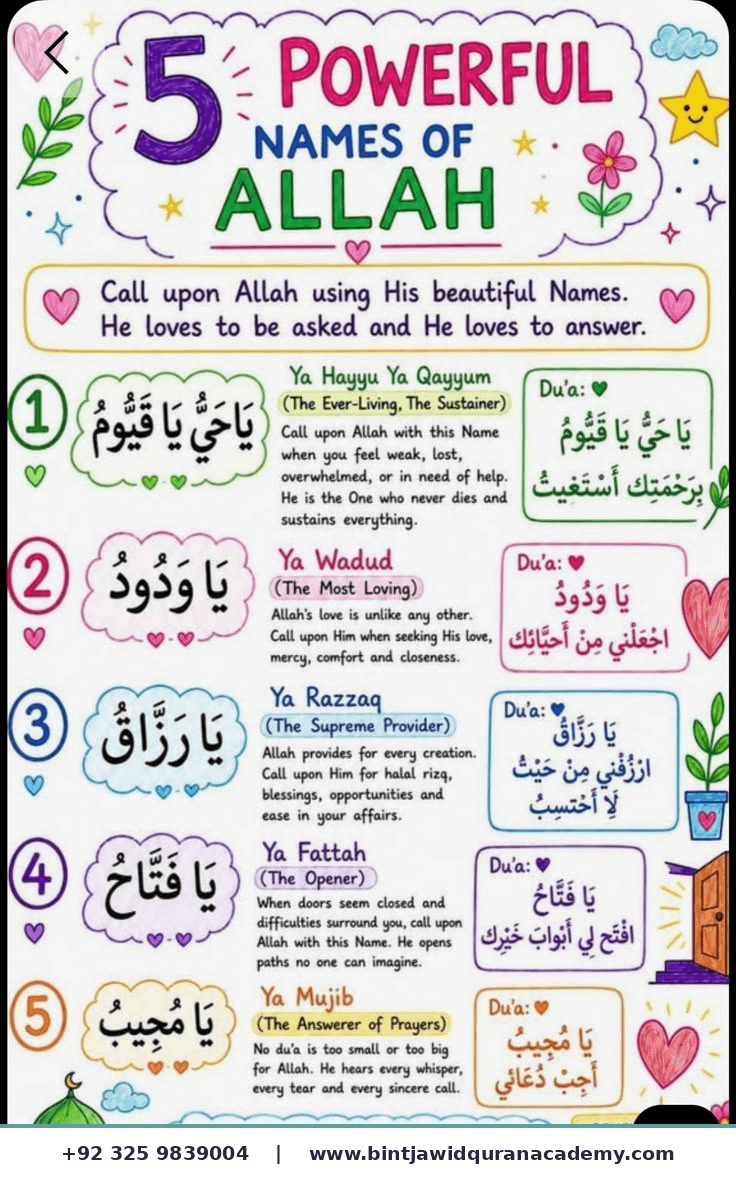 5 POWERFUL
NAMES OF
ALLAH
Call upon Allah using His beautiful Names.
He loves to be asked and He loves to answer.
1
يَاحَيُّ يَا قَيُّومُ
Ya Hayyu Ya Qayyum
(The Ever-Living, The Sustainer)
Call upon Allah with this Name
when you feel weak, lost,
overwhelmed, or in need of help.
He is the One who never dies and
sustains everything.
Du'a:
يَا حَيُّ يَا قَيُّومُ
بِرَحْمَتِك أَسْتَغيثُ
2
يَا وَدُودُ
Ya Wadud
(The Most Loving)
Allah's love is unlike any other.
Call upon Him when seeking His love,
mercy, comfort and closeness.
Du'a:
يَا وَدُودُ
اجْعَلْني مِنْ أَحبَّائِك
3
يَا رَزَّاقُ
Ya Razzaq
(The Supreme Provider)
Allah provides for every creation.
Call upon Him for halal rizq,
blessings, opportunities and
ease in your affairs.
Du'a:
يَا رَزَّاقُ
ارْزُقْني مِنْ حَيْثُ
لَا أَحْتسِبُ
4
يَا فَتَّاحُ
Ya Fattah
(The Opener)
When doors seem closed and
difficulties surround you, call upon
Allah with this Name. He opens
paths no one can imagine.
Du'a:
يَا فَتَّاحُ
افْتَح لِي أَبْوابَ خَيْرِك
5
يَا مُجِيبُ
Ya Mujib
(The Answerer of Prayers)
No du'a is too small or too big
for Allah. He hears every whisper,
every tear and every sincere call.
Du'a:
يَا مُجِيبُ
أَجِبْ دُعَائي
+92 325 9839004 | www.bintjawidquranacademy.com